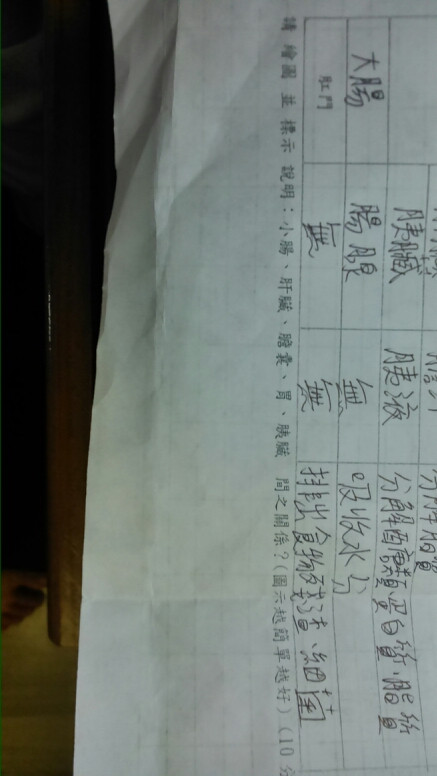 分解脂質
胰臟 胰液 分解醣類蛋白質、脂質
大腸 腸腺 無 吸收水分
肛門 無 無 排出食物殘渣、細菌
請繪圖並標示說明：小腸、肝臟、膽囊、胃、胰臟 間之關係？（圖示越簡單越好）（10分